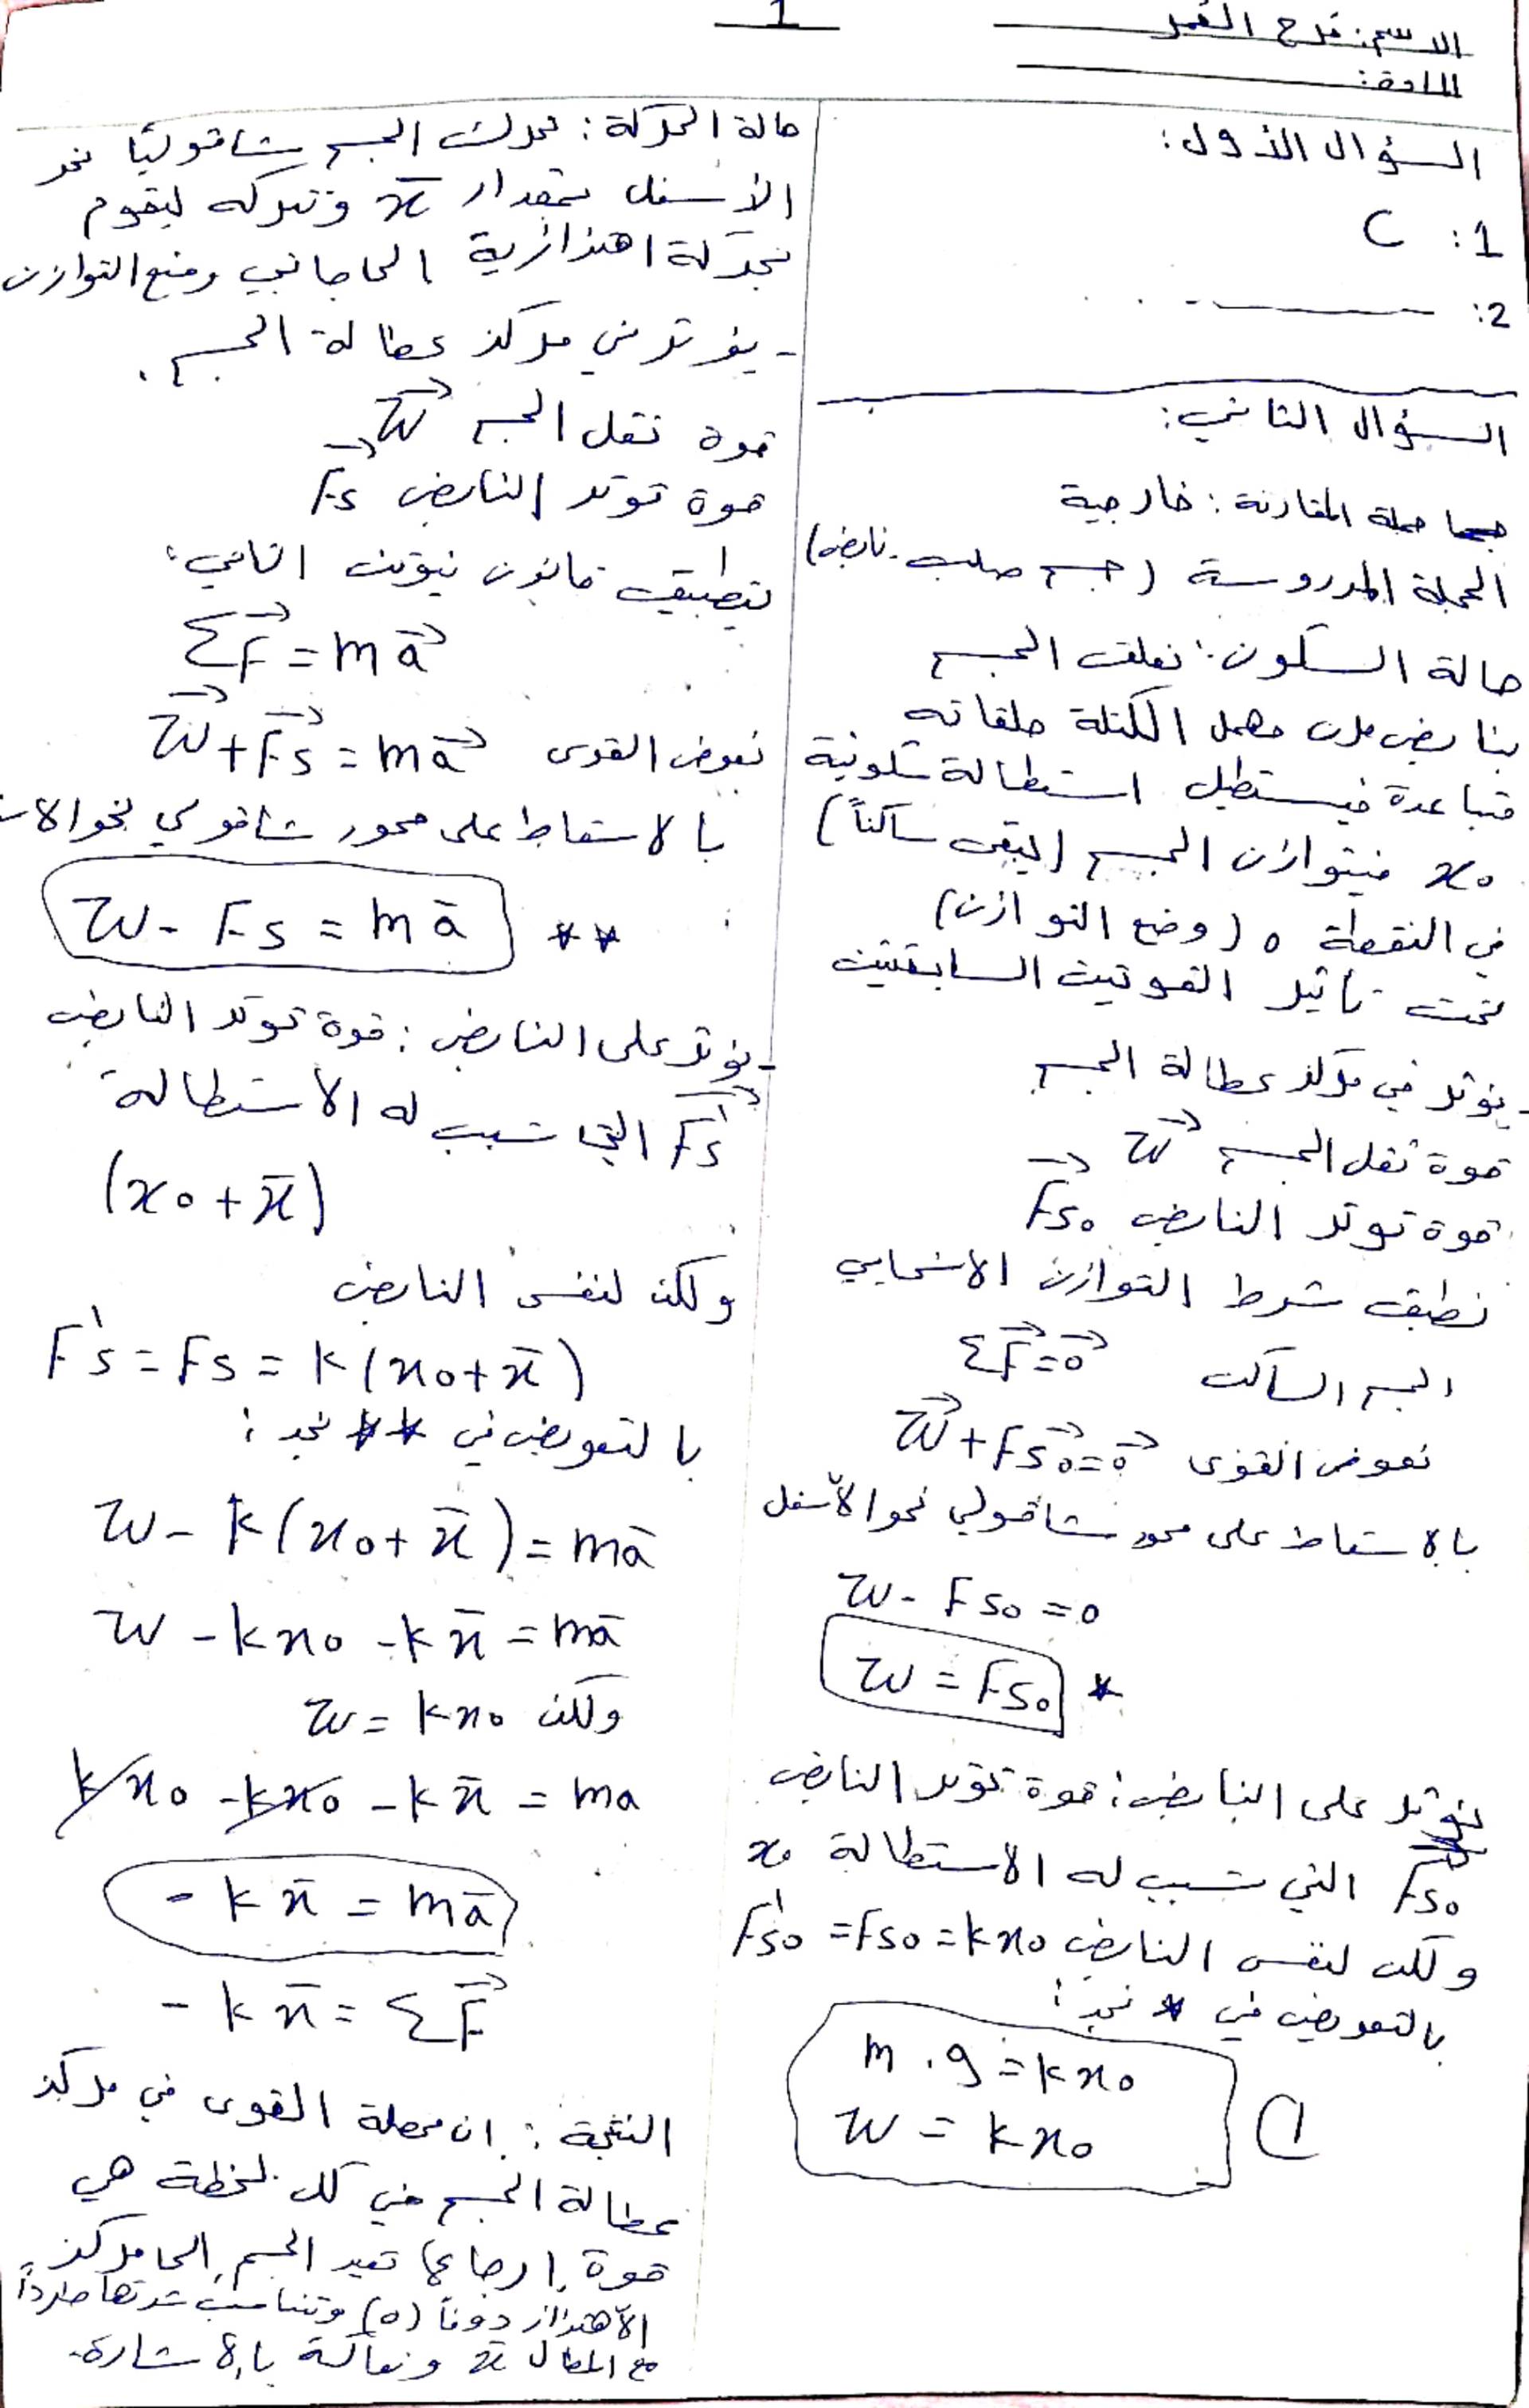 1
الاسم: فرح القمر
المادة:
السؤال الأول:
1: C
2:
السؤال الثاني:
جملة المقارنة: خارجية
الجملة المدروسة (جسم صلب - نابض)
حالة السكون: نعلق الجسم
بنابض مرن مهمل الكتلة حلقاته
متباعدة فيستطيل استطالة سكونية
x₀ فيتوازن الجسم (يبقى ساكناً)
في النقطة o (وضع التوازن)
تحت تأثير القوتين السابقتين
- يؤثر في مركز عطالة الجسم
قوة ثقل الجسم W⃗
قوة توتر النابض F⃗s₀
نطبق شرط التوازن الانسحابي
الجسم ساكن ΣF⃗ = 0⃗
نعوض القوى W⃗ + F⃗s₀ = 0⃗
بالاسقاط على محور شاقولي نحو الأسفل
W - Fs₀ = 0
W = Fs₀ *
يؤثر على النابض: قوة توتر النابض
F⃗s₀ التي تسبب له الاستطالة x₀
ولكن لنفس النابض F's₀ = Fs₀ = kx₀
بالتعويض في * نجد:
m . g = kx₀
W = kx₀ ①
حالة الحركة: نحرك الجسم شاقوليًا نحو
الأسفل بمقدار x̄ ونتركه ليقوم
بحركة اهتزازية الى جانبي وضع التوازن
- يؤثر في مركز عطالة الجسم.
قوة ثقل الجسم W⃗
قوة توتر النابض F⃗s
بتطبيق قانون نيوتن الثاني:
ΣF⃗ = ma⃗
نعوض القوى W⃗ + F⃗s = ma⃗
بالاسقاط على محور شاقولي نحو الا
W - Fs = mā **
- يؤثر على النابض: قوة توتر النابض
F⃗'s التي تسبب له الاستطالة
(x₀ + x̄)
ولكن لنفس النابض
F's = Fs = k(x₀ + x̄)
بالتعويض في ** نجد:
W - k(x₀ + x̄) = mā
W - kx₀ - kx̄ = mā
ولكن W = kx₀
kx₀ - kx₀ - kx̄ = ma
- kx̄ = mā
- kx̄ = ΣF⃗
النتيجة: ان محصلة القوى في مركز
عطالة الجسم في كل لحظة هي
قوة إرجاع تعيد الجسم إلى مركز
الاهتزاز دوماً (o) وتتناسب شدتها طرداً
مع المطال x̄ وتعاكسه بالإشارة.